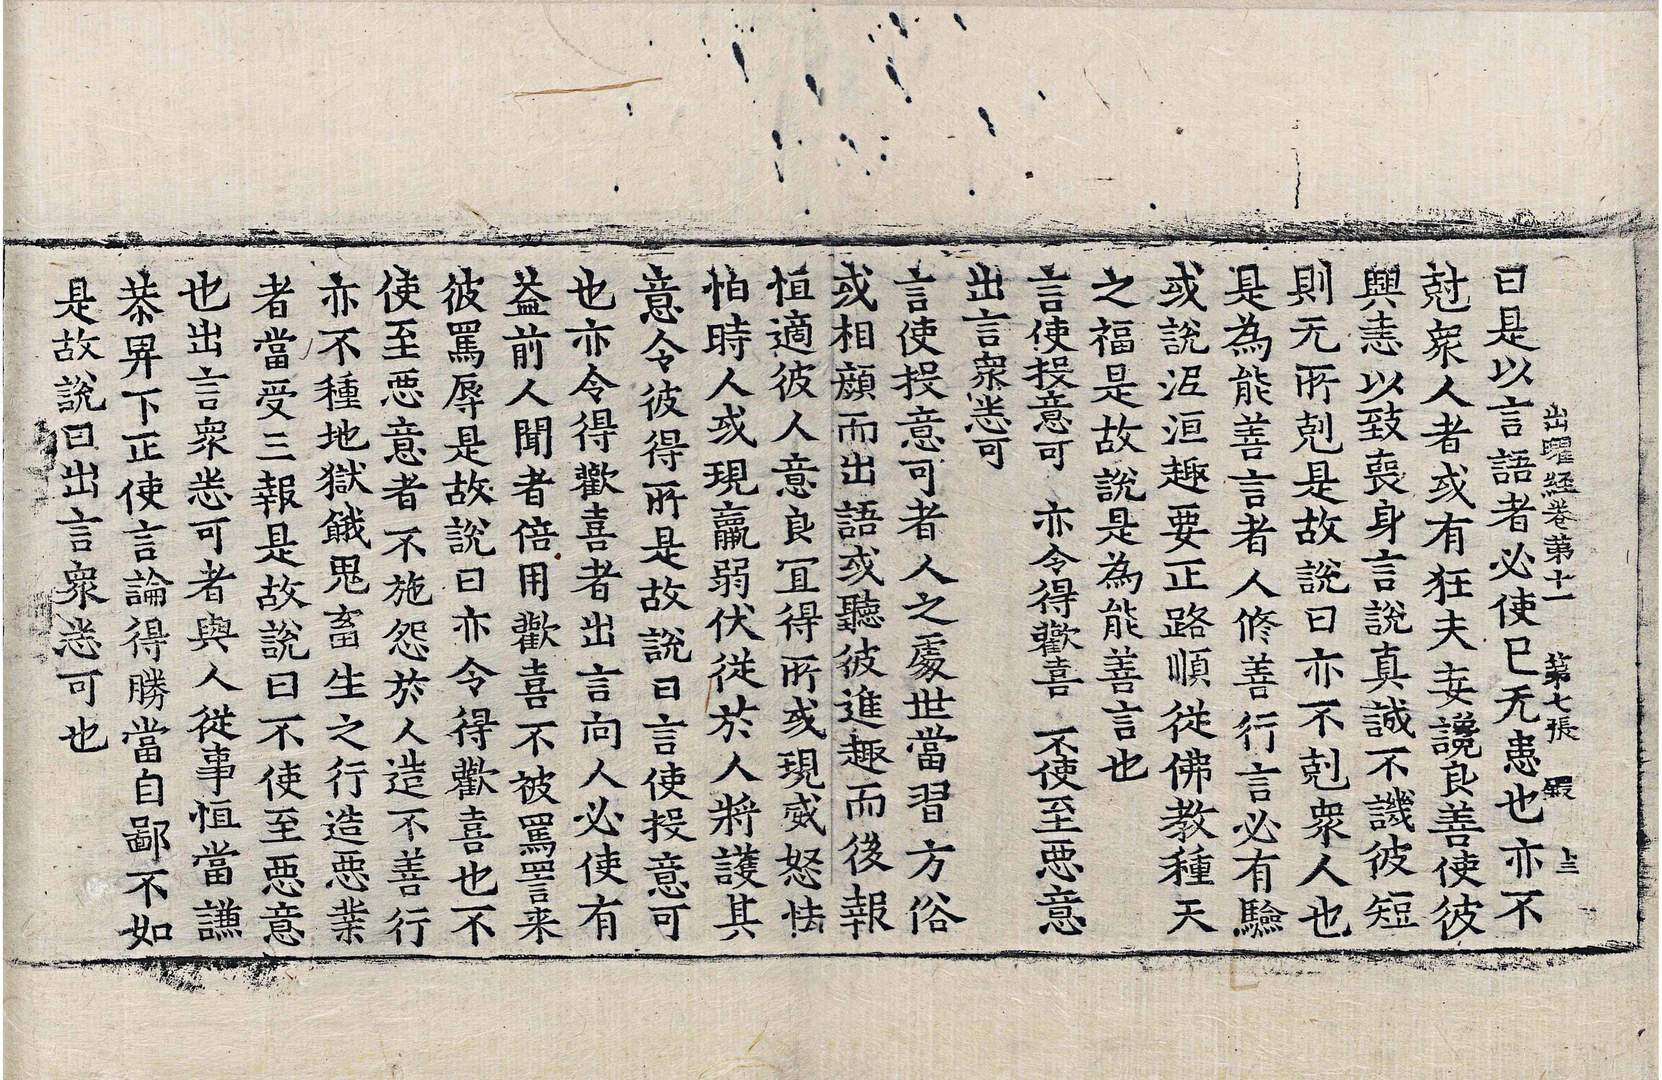 出曜經卷第十一 第七張 叚 上三
曰是以言語者必使已无患也亦不
尅衆人者或有狂夫妄讒良善使彼
興恚以致喪身言說真誠不譏彼短
則无所剋是故說曰亦不剋衆人也
是為能善言者人修善行言必有驗
或說泥洹趣要正路順從佛教種天
之福是故說是為能善言也
言使投意可 亦令得歡喜 不使至惡意
出言衆悉可
言使投意可者人之處世當習方俗
或相顔而出語或聽彼進趣而後報
恒適彼人意良冝得所或現威怒怯
怕時人或現羸弱伏從於人將護其
意令彼得所是故說曰言使投意可
也亦令得歡喜者出言向人必使有
益前人聞者倍用歡喜不被罵詈来
彼罵辱是故說曰亦令得歡喜也不
使至惡意者不施怨於人造不善行
亦不種地獄餓鬼畜生之行造惡業
者當受三報是故說曰不使至惡意
也出言衆悉可者與人從事恒當謙
恭卑下正使言論得勝當自鄙不如
是故說曰出言衆悉可也